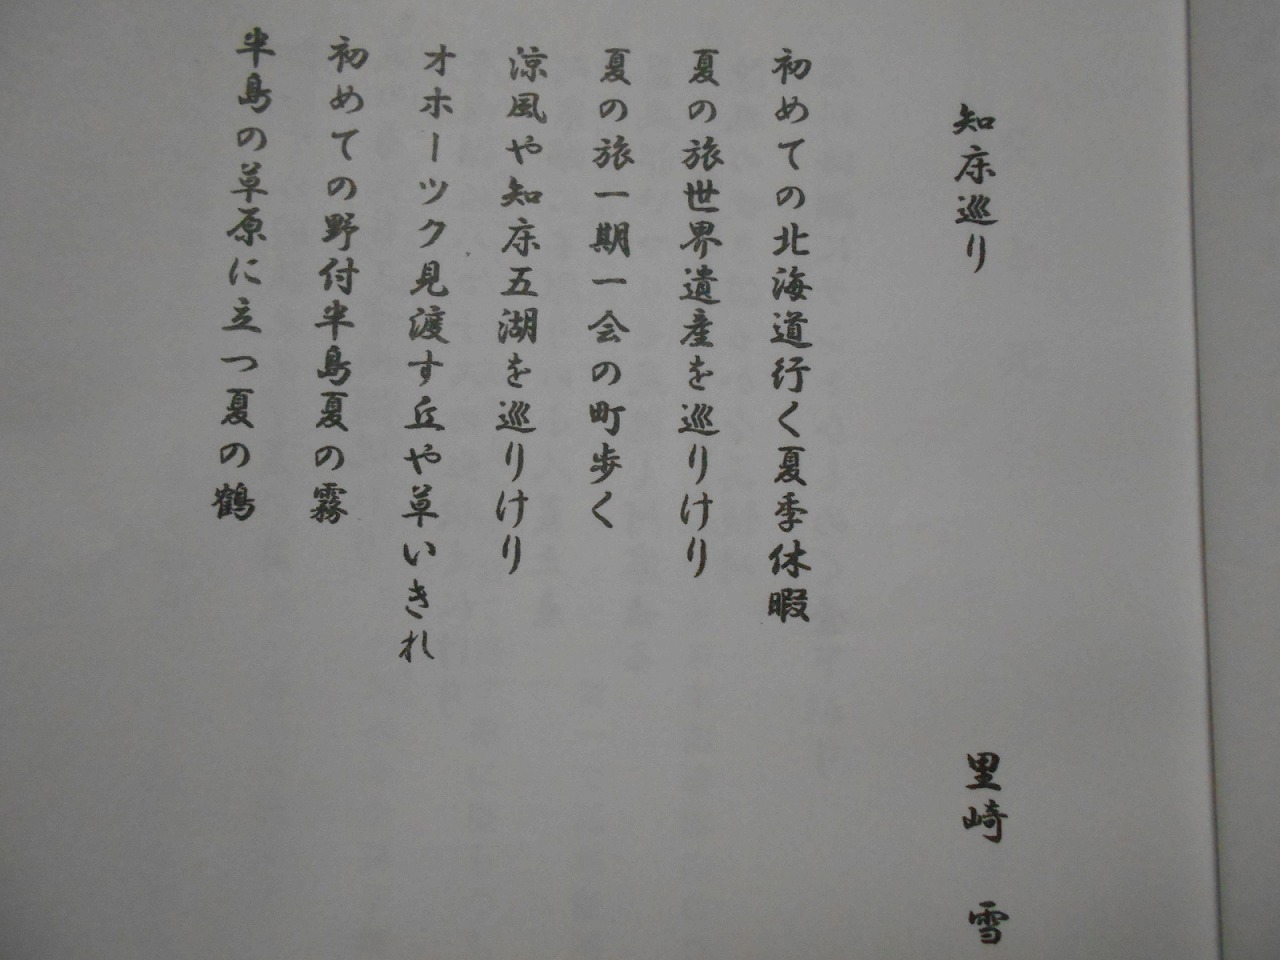 知床巡り
里崎 雪
初めての北海道行く夏季休暇
夏の旅世界遺産を巡りけり
夏の旅一期一会の町歩く
涼風や知床五湖を巡りけり
オホーツク見渡す丘や草いきれ
初めての野付半島夏の霧
半島の草原に立つ夏の鶴